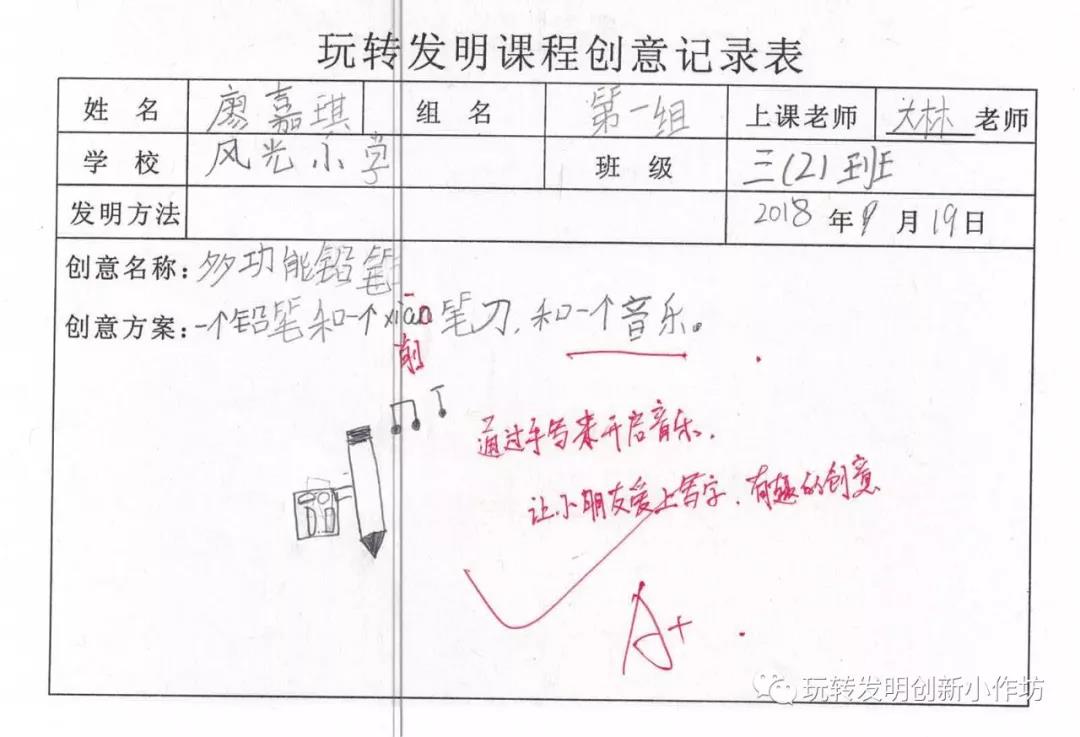 玩转发明课程创意记录表
姓 名 廖嘉琪 组 名 第一组 上课老师 大林 老师
学 校 风光小学 班 级 三(2)班
发明方法 2018 年 9 月 19 日
创意名称:多功能铅笔
创意方案:一个铅笔和一个xiāo笔刀,和一个音乐。
削
通过手写来开启音乐.
让小朋友爱上写字,有趣的创意
A+
玩转发明创新小作坊